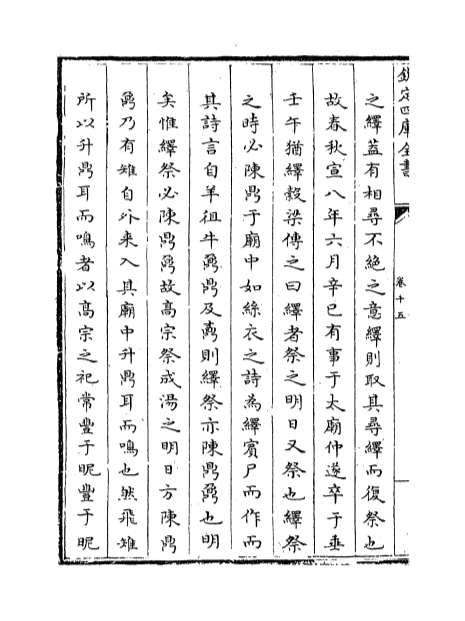 欽定四庫全書
卷十五
之繹蓋有相尋不絶之意繹則取其尋繹而復祭也
故春秋宣八年六月辛巳有事于太廟仲遂卒于垂
壬午猶繹榖梁傳之曰繹者祭之明日又祭也繹祭
之時必陳鼎于廟中如絲衣之詩為繹賓尸而作而
其詩言自羊徂牛鼐鼎及鼒則繹祭亦陳鼎鼐也明
矣惟繹祭必陳鼎鼐故高宗祭成湯之明日方陳鼎
鼐乃有雉自外来入其廟中升鼎耳而鳴也然飛雉
所以升鼎耳而鳴者以髙宗之祀常豐于昵豐于昵